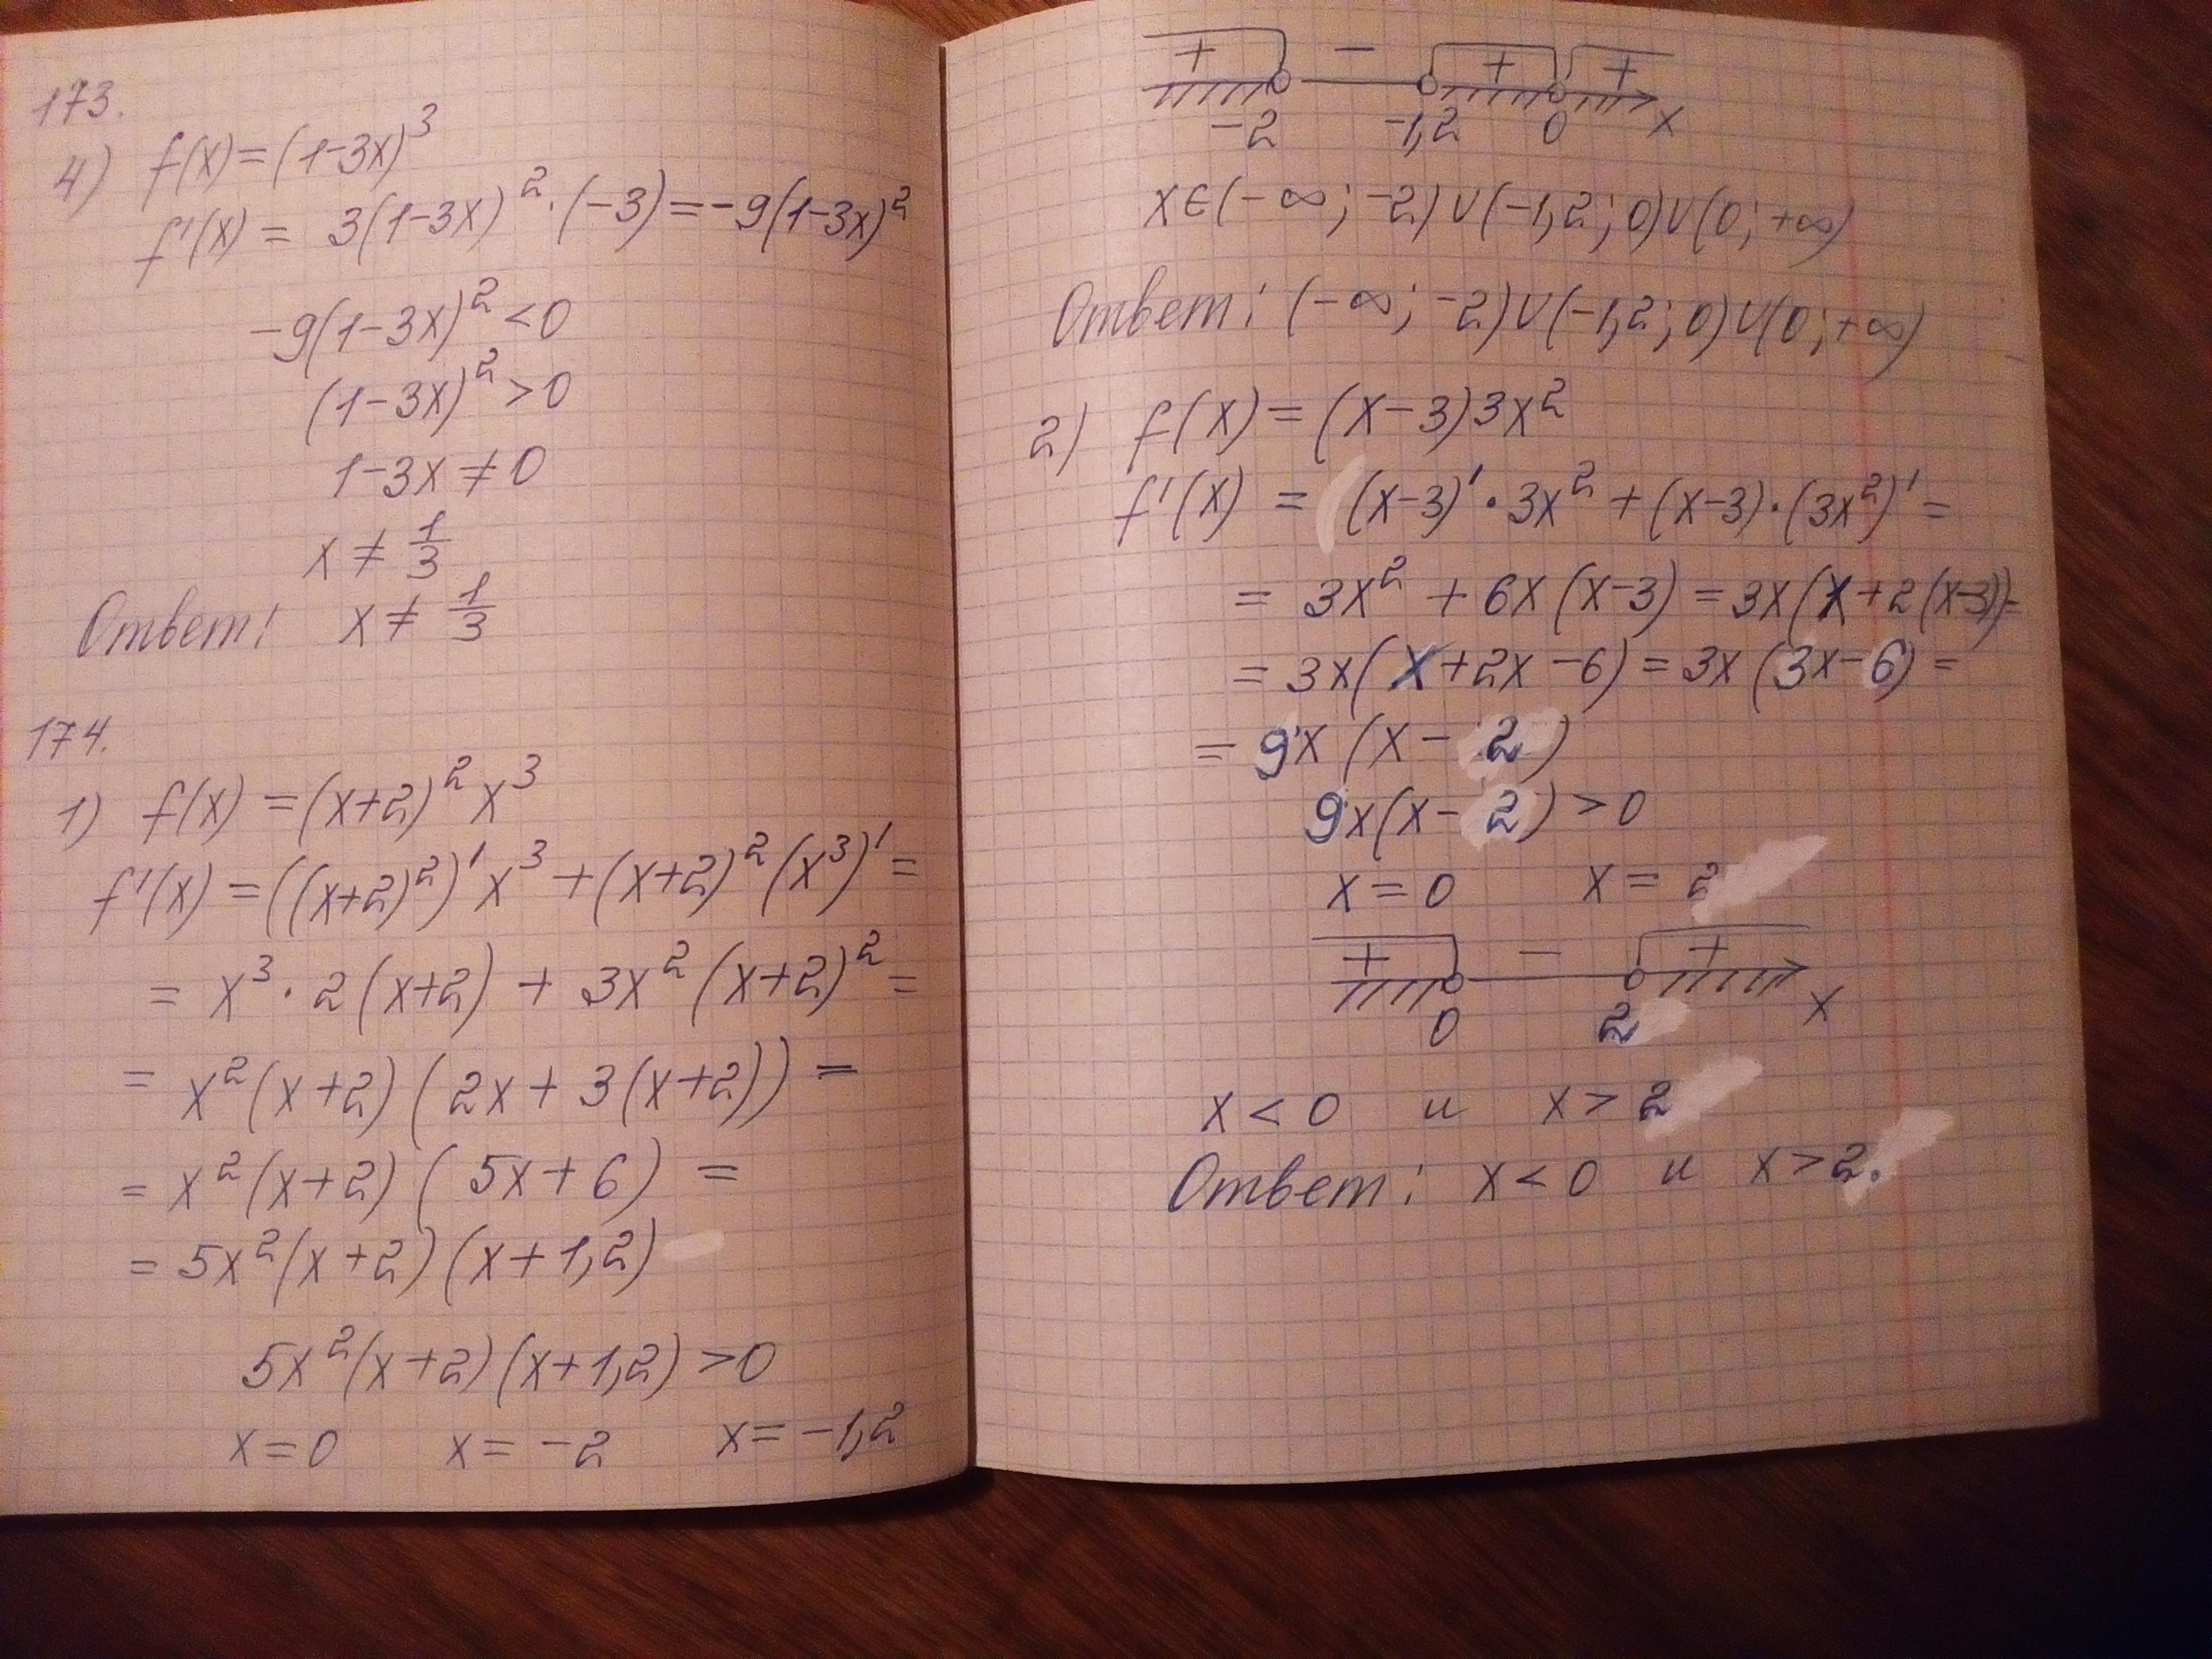 173.
4) f(x)=(1-3x)³
f'(x) = 3(1-3x)²·(-3)=-9(1-3x)²
-9(1-3x)²<0
(1-3x)²>0
1-3x≠0
x≠1/3
Ответ: x≠1/3
174.
1) f(x)=(x+2)²x³
f'(x)=((x+2)²)'x³+(x+2)²(x³)'=
= x³·2(x+2) + 3x²(x+2)²=
= x²(x+2)(2x+3(x+2))=
= x²(x+2)(5x+6) =
= 5x²(x+2)(x+1,2)
5x²(x+2)(x+1,2)>0
x=0 x=-2 x=-1,2
+ - + +
-2 -1,2 0 x
x∈(-∞;-2)∪(-1,2;0)∪(0;+∞)
Ответ: (-∞;-2)∪(-1,2;0)∪(0;+∞)
2) f(x)=(x-3)3x²
f'(x) = (x-3)'·3x²+(x-3)·(3x²)'=
= 3x² + 6x(x-3)=3x(x+2(x-3))=
= 3x(x+2x-6)=3x(3x-6)=
= 9x(x-2)
9x(x-2)>0
x=0 x=2
+ - +
0 2 x
x<0 и x>2
Ответ: x<0 и x>2.